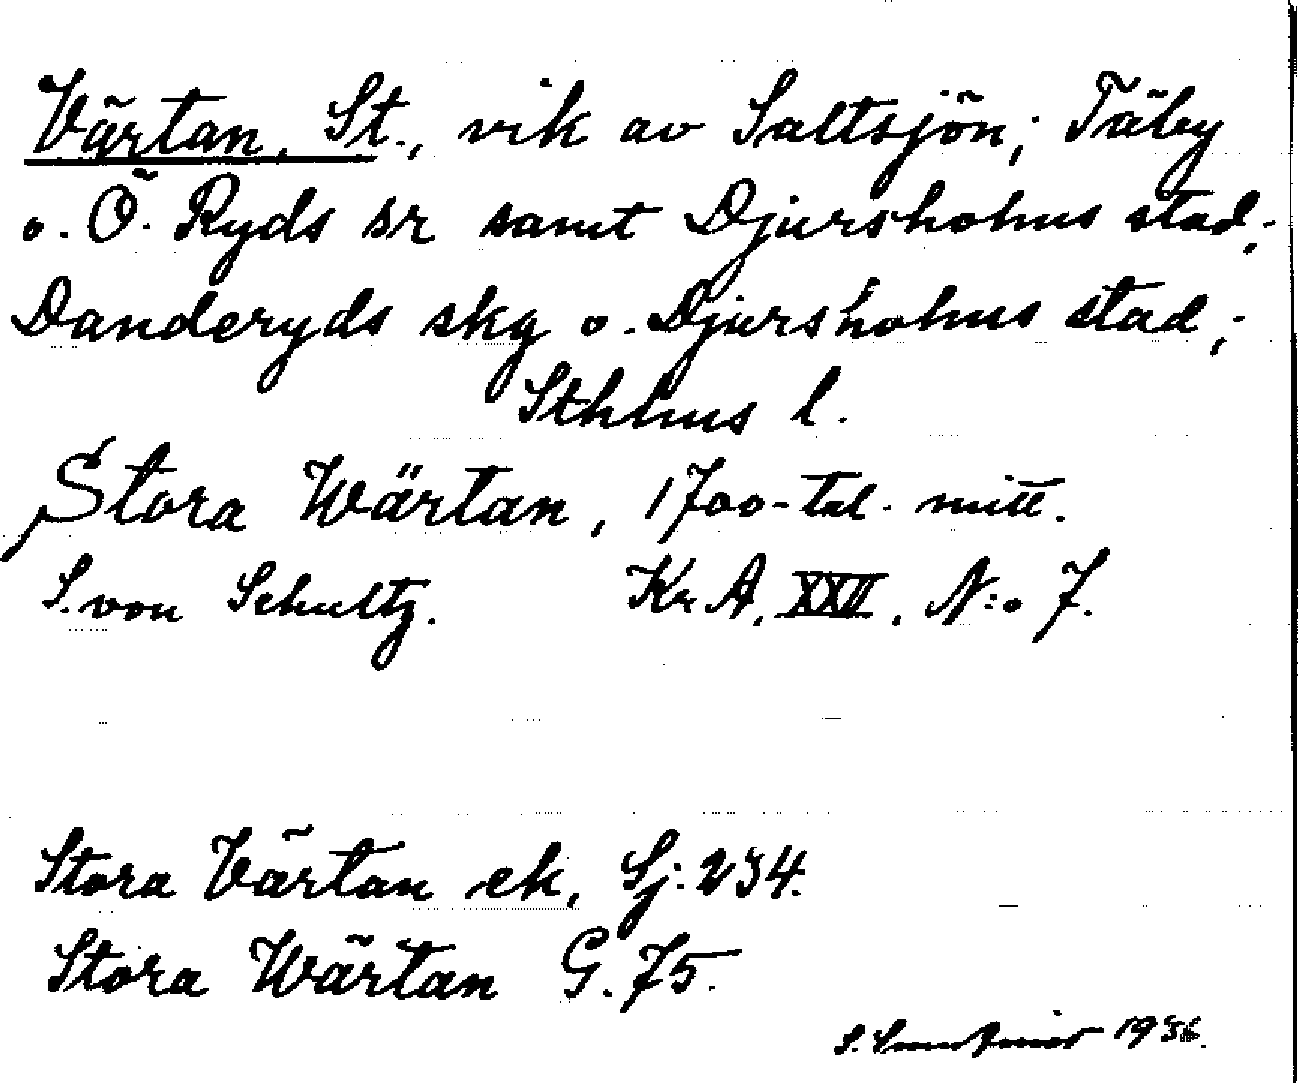 Värtan, St., vik av Saltsjön; Täby
o. Ö. Ryds sr samt Djursholms stad;
Danderyds skg o. Djursholms stad;
Sthlms l.
Stora Wärtan, 1700-tal. mitt.
S. von Schultz. Kr A, XXII, N:o 7.
Stora Värtan ek, Sj. 234.
Stora Wärtan G. 75.
S. 1936.